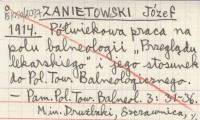 ZANIETOWSKI Józef
1914. Półwiekowa praca na
polu balneologii „Przeglądu
lekarskiego" i jego stosunek
do Pol. Tow. Balneologicznego.
– Pam. Pol. Tow. Balneol. 3: 31-36.
Min. Drużbaki, Szczawnica,